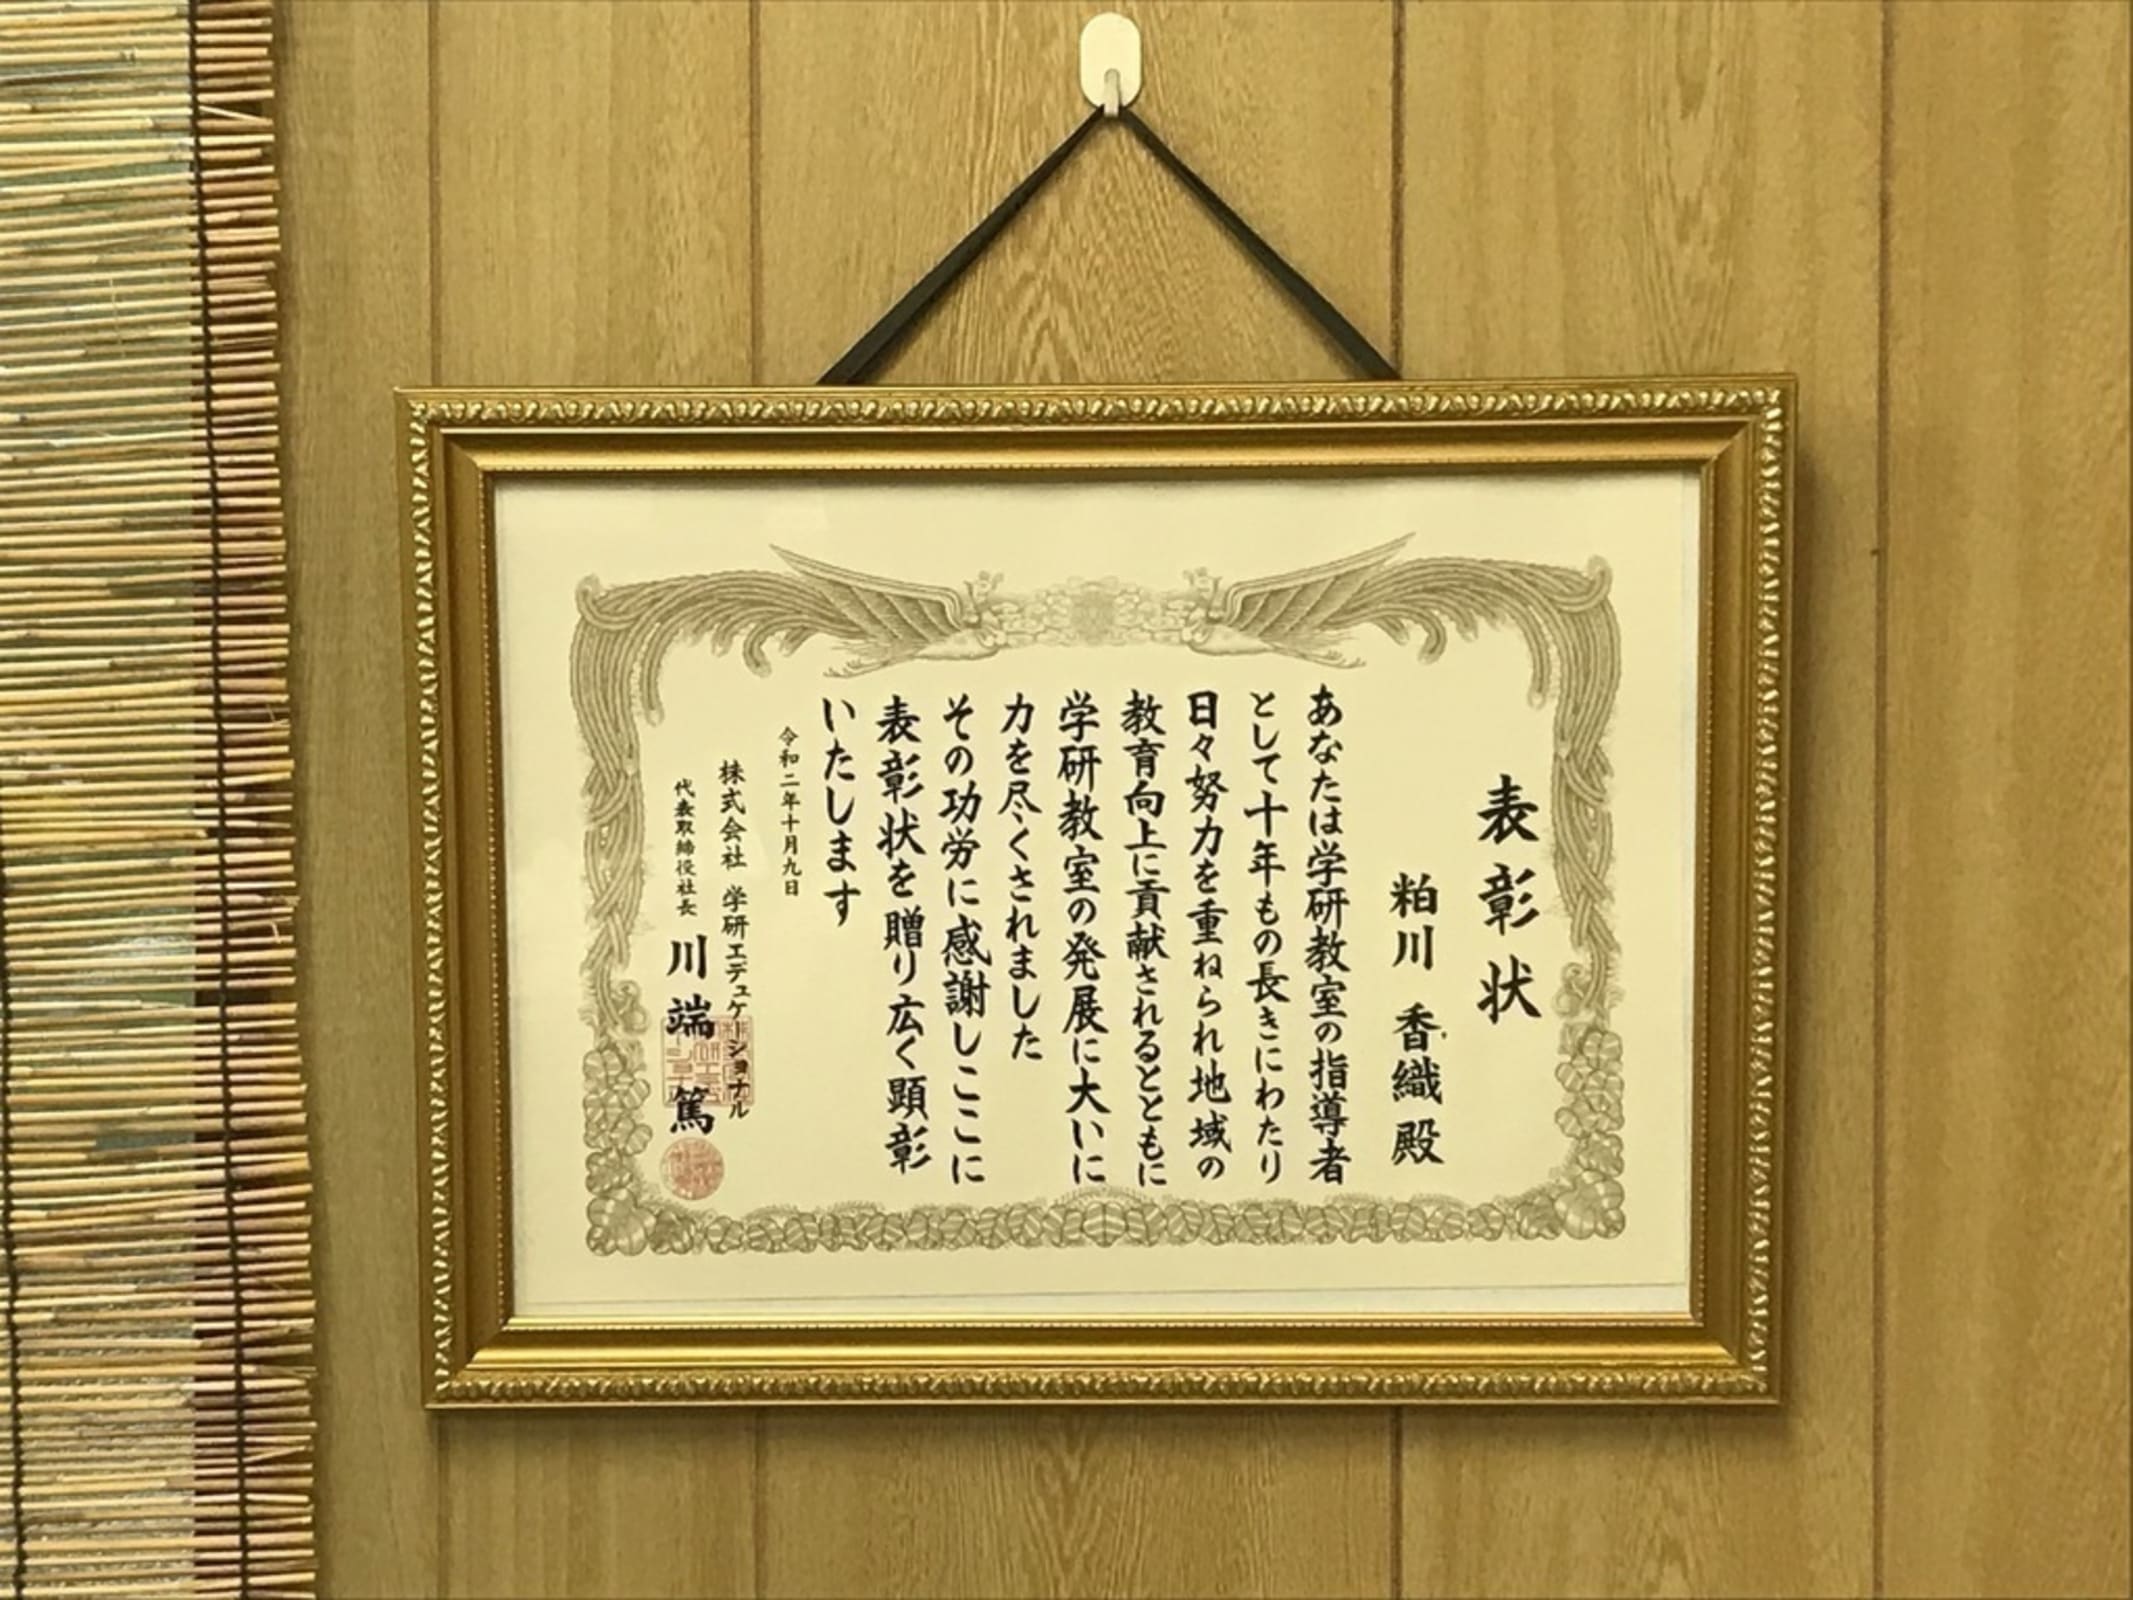 表彰状
粕川 香織 殿
あなたは学研教室の指導者
として十年もの長きにわたり
日々努力を重ねられ地域の
教育向上に貢献されるとともに
学研教室の発展に大いに
力を尽くされました
その功労に感謝しここに
表彰状を贈り広く顕彰
いたします
令和二年十月九日
株式会社 学研エデュケーショナル
代表取締役社長 川端 篤